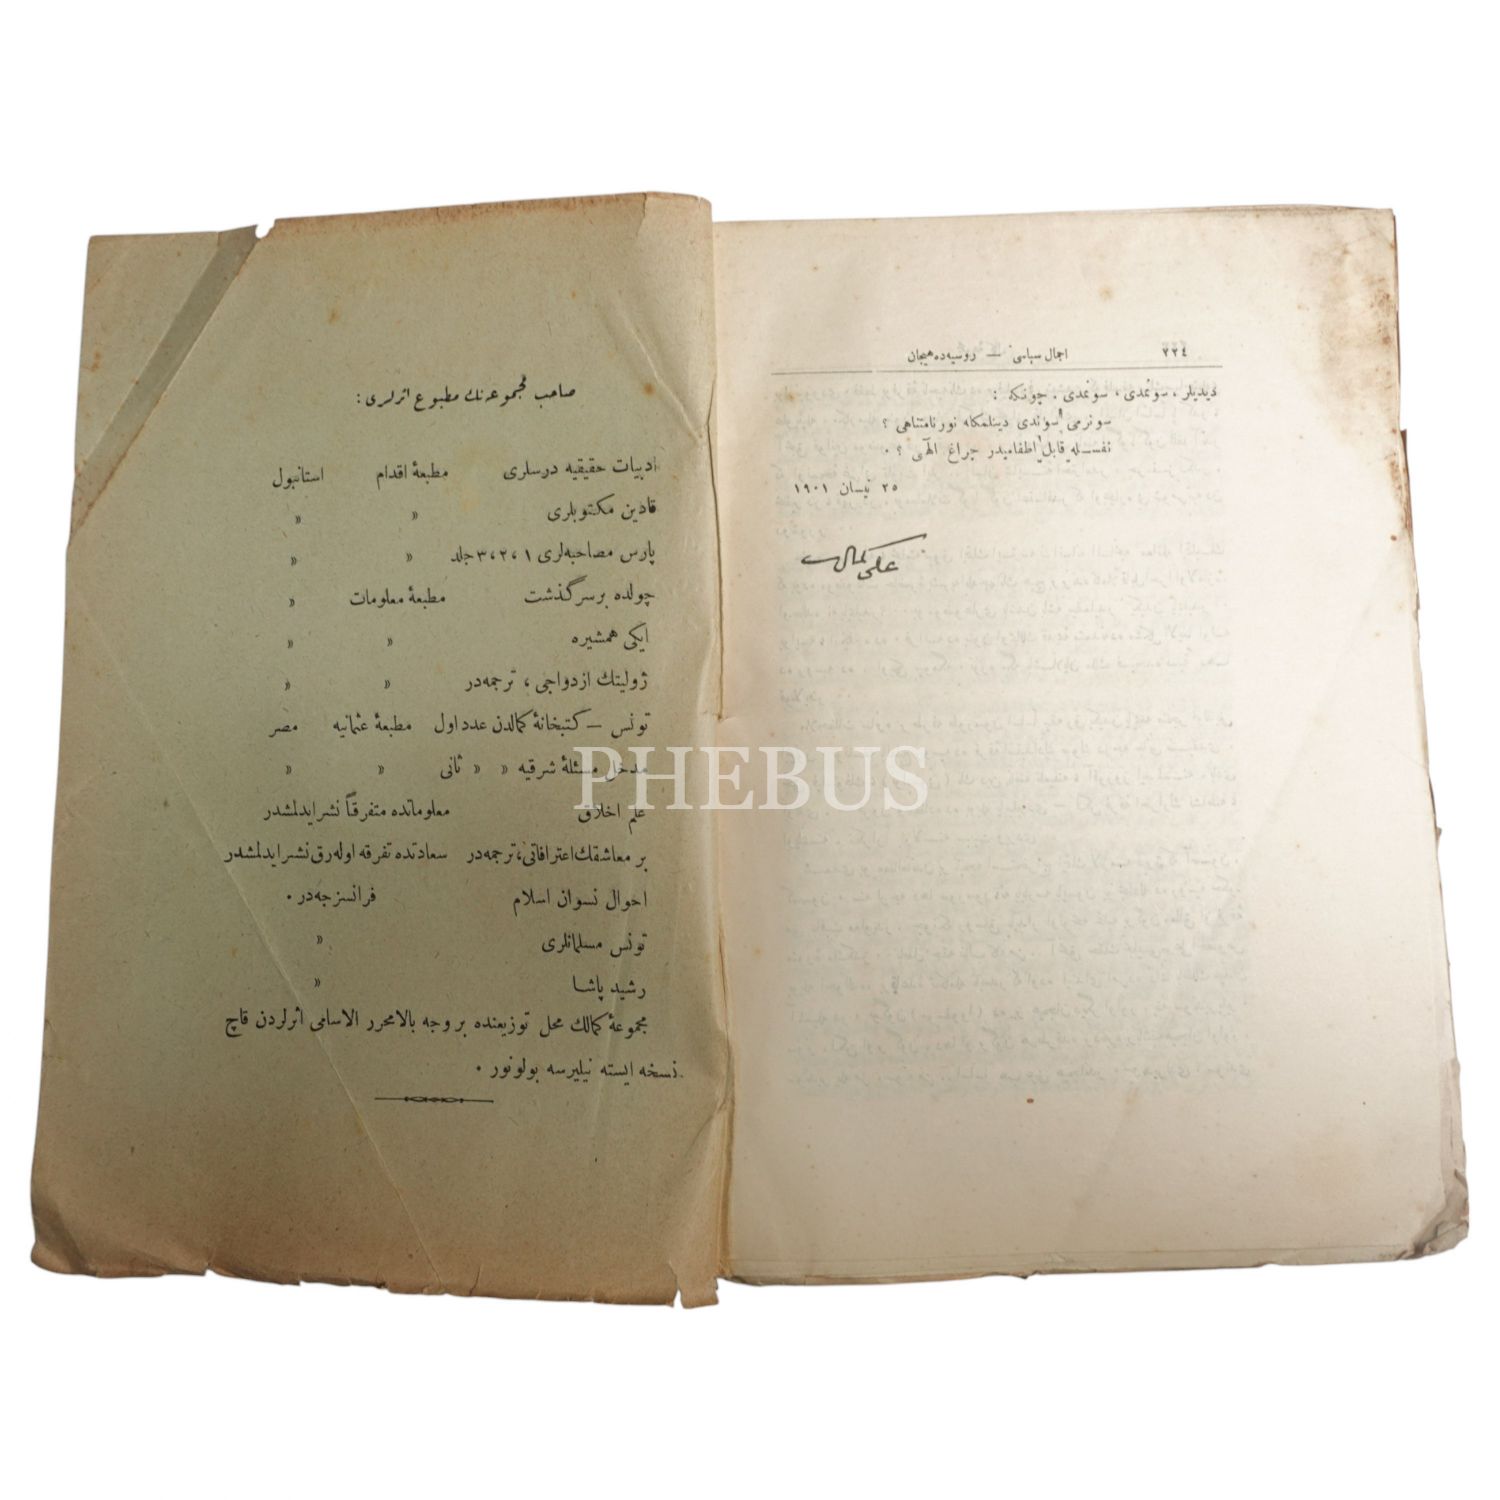 ٢٢٤ اجمال سیاسی — روسیه‌ده هیجان
دیدیلر ، سوندی ، سوندی . چونکه :
سونرمی سوندی دینلمکله نور نامتناهی ؟
نفسله قابل اطفامیدر چراغ الهی ؟ .
٢٥ نیسان ١٩٠١
علی کمال
صاحب مجموعه‌نك مطبوع اثرلری :
ادبیات حقیقیه درسلری مطبعهٔ اقدام استانبول
قادین مکتوبلری » »
پارس مصاحبه‌لری ١ ، ٢ ، ٣ جلد » »
چولده بر سرگذشت مطبعهٔ معلومات »
ایکی همشیره » »
ژولیتك ازدواجی ، ترجمه‌در » »
تونس — کتبخانهٔ کمالدن عدد اول مطبعهٔ عثمانیه مصر
مدخل مسئلهٔ شرقیه » » ثانی » »
علم اخلاق معلوماتده متفرقاً نشر ایدلمشدر
بر معاشقك اعترافاتی ، ترجمه‌در سعادتده تفرقه اوله‌رق نشر ایدلمشدر
احوال نسوان اسلام فرانسزجه‌در .
تونس مسلمانلری »
رشید پاشا »
مجموعهٔ کمالك محل توزیعنده بر وجه بالا محرر الاسامی اثرلردن قاچ
نسخه ایسته نیلیرسه بولونور .
PHEBUS